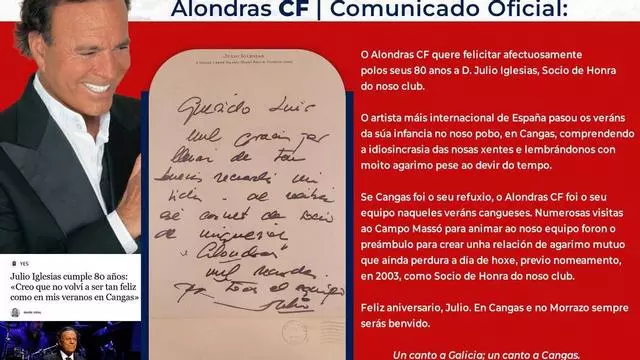 Alondras CF | Comunicado Oficial:
JULIO IGLESIAS
Querido Luis
mil gracias por
llenar de tan
buenos recuerdos mi
vida - al recibir
el carnet de socio
de
«Alondras»
mil recuerdos
para todo el equipo
Julio
YES
Julio Iglesias cumple 80 años:
«Creo que no volví a ser tan feliz
como en mis veranos en Cangas»
O Alondras CF quere felicitar afectuosamente
polos seus 80 anos a D. Julio Iglesias, Socio de Honra
do noso club.
O artista máis internacional de España pasou os veráns
da súa infancia no noso pobo, en Cangas, comprendendo
a idiosincrasia das nosas xentes e lembrándonos con
moito agarimo pese ao devir do tempo.
Se Cangas foi o seu refuxio, o Alondras CF foi o seu
equipo naqueles veráns cangueses. Numerosas visitas
ao Campo Massó para animar ao noso equipo foron o
preámbulo para crear unha relación de agarimo mutuo
que aínda perdura a día de hoxe, previo nomeamento,
en 2003, como Socio de Honra do noso club.
Feliz aniversario, Julio. En Cangas e no Morrazo sempre
serás benvido.
Un canto a Galicia; un canto a Cangas.